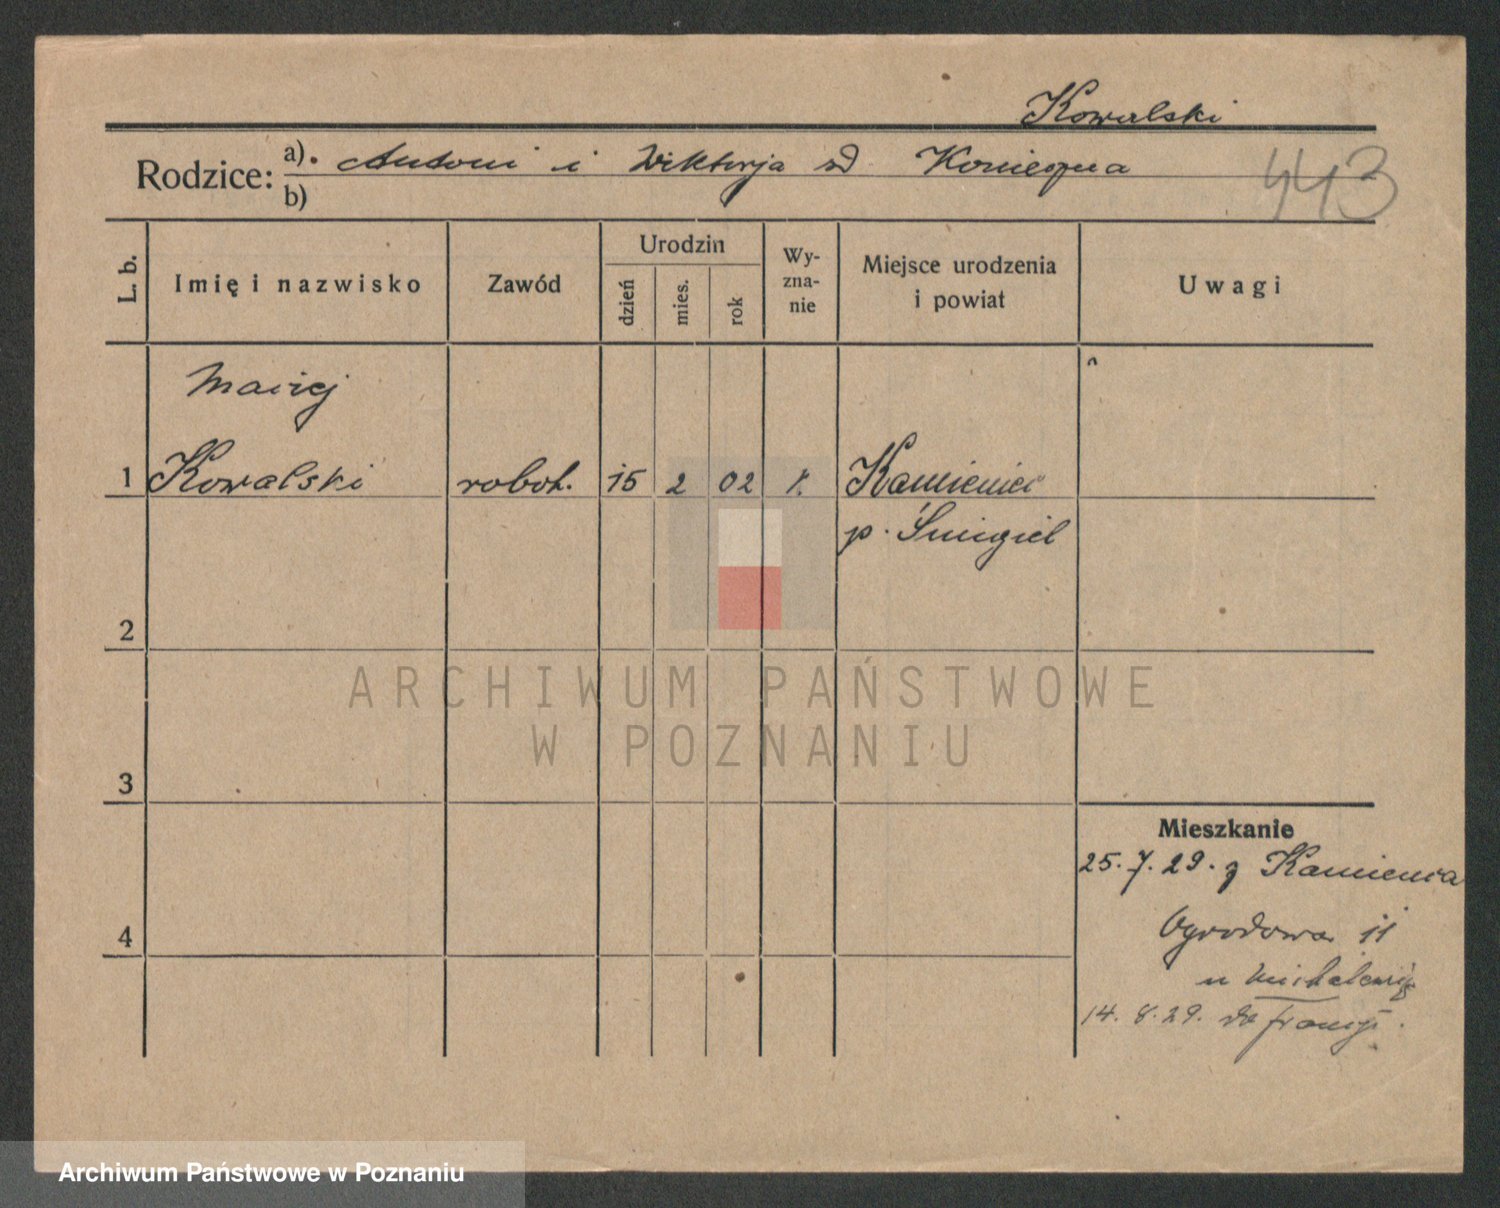 Kowalski
Rodzice: a). Antoni i Wiktorja zd Konieczna
b)
443
L. b. Imię i nazwisko Zawód Urodzin dzień mies. rok Wy-zna-nie Miejsce urodzenia i powiat Uwagi
Maciej
1 Kowalski robot. 15 2 02 k. Kamieniec
p. Śmigiel
2
ARCHIWUM PAŃSTWOWE
W POZNANIU
3
Mieszkanie
25.7.29. z Kamieńca
4 Ogrodowa 11
u Michalewicz
14.8.29. do Francji.
Archiwum Państwowe w Poznaniu